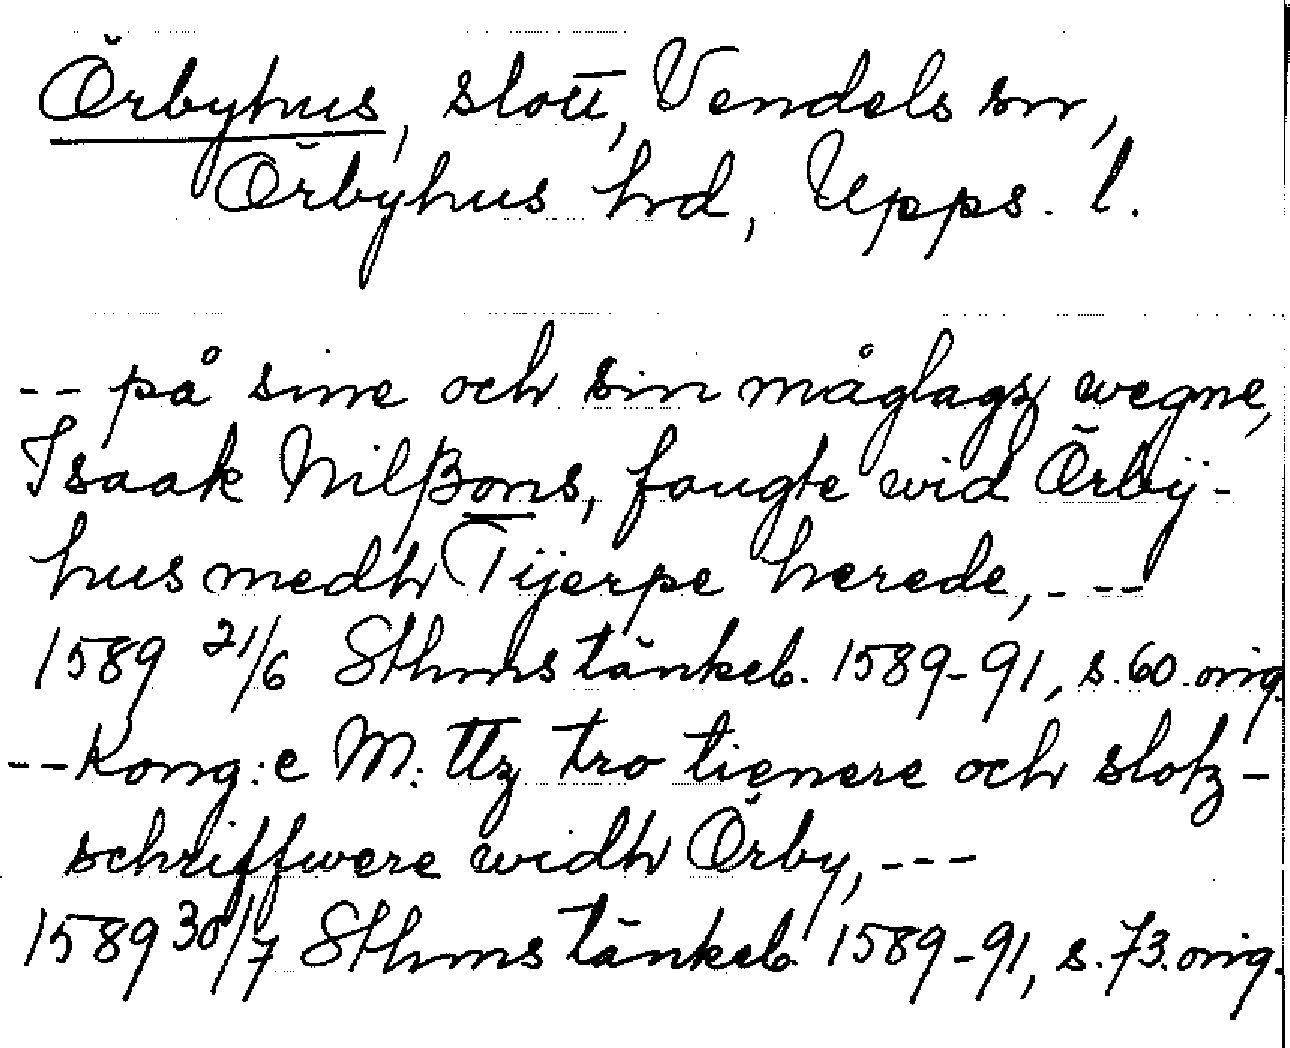 Örbyhus, slott, Vendels snr,
Örbyhus hrd, Upps. l.
-- på sine och sin måglagz wegne,
Isaak Nilßons, fougte wid Örbÿ-
hus medh Tijerpe herede, - --
1589 21/6 Sthms tänkeb. 1589-91, s. 60. orig.
-- Kong:e M:ttz tro tienere och slotz-
schriffwere widh Örby, ---
1589 30/7 Sthms tänkeb. 1589-91, s. 73. orig.